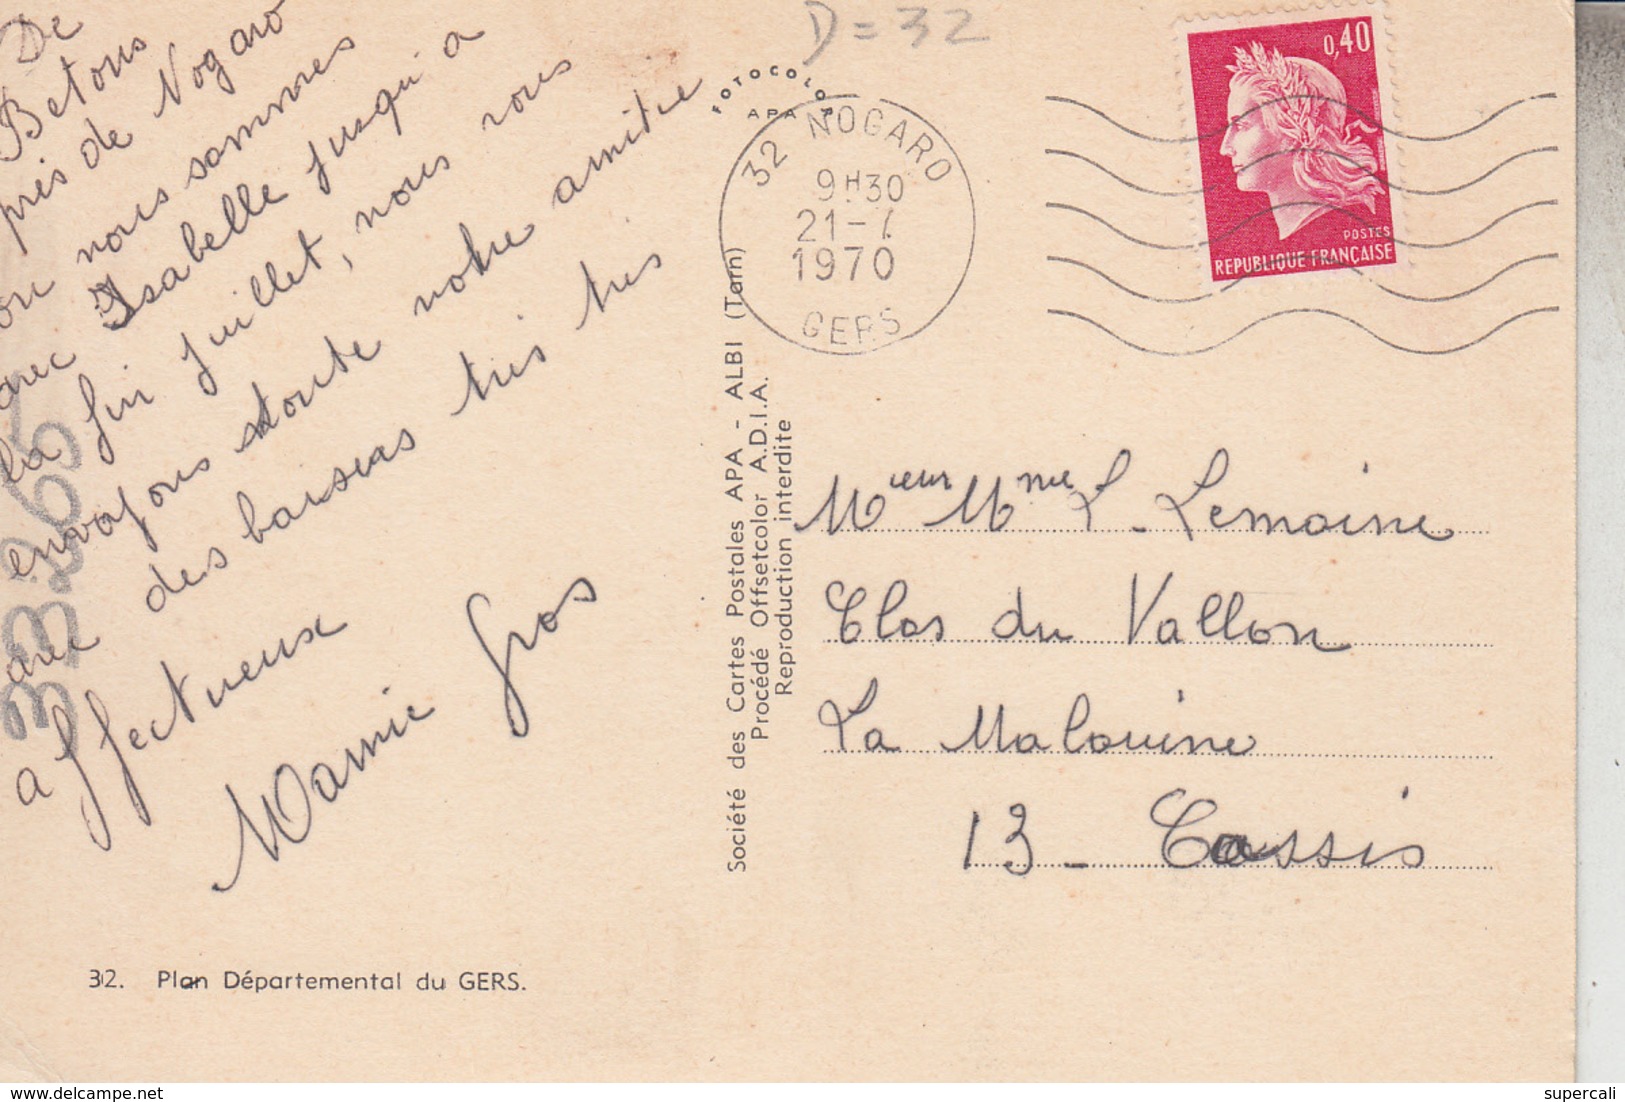 De
Betous
près de Nogaro
où nous sommes
avec Isabelle jusqu'à
la fin juillet, nous vous
envoyons toute notre amitié
avec des baisers très très
affectueux
Mamie Gros
32. Plan Départemental du GERS.
Société des Cartes Postales APA - ALBI (Tarn)
Procédé Offsetcolor A.D.I.A.
Reproduction interdite
D = 32
FOTOCOLOR
APA
32 NOGARO
9H30
21-7
1970
GERS
0,40
POSTES
REPUBLIQUE FRANÇAISE
Mieur Mme L. Lemoine
Clos du Vallon
La Malouine
13 - Cassis
supercali